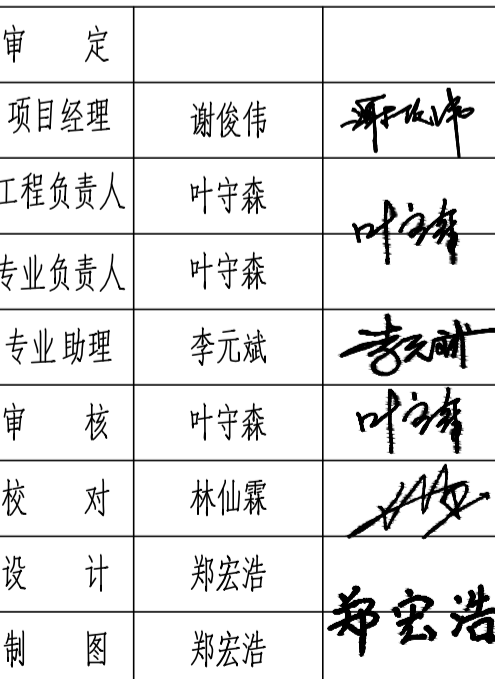 审 定
项目经理 谢俊伟
工程负责人 叶守森
专业负责人 叶守森
专业助理 李元斌 李元斌
审 核 叶守森
校 对 林仙霖
设 计 郑宏浩 郑宏浩
制 图 郑宏浩